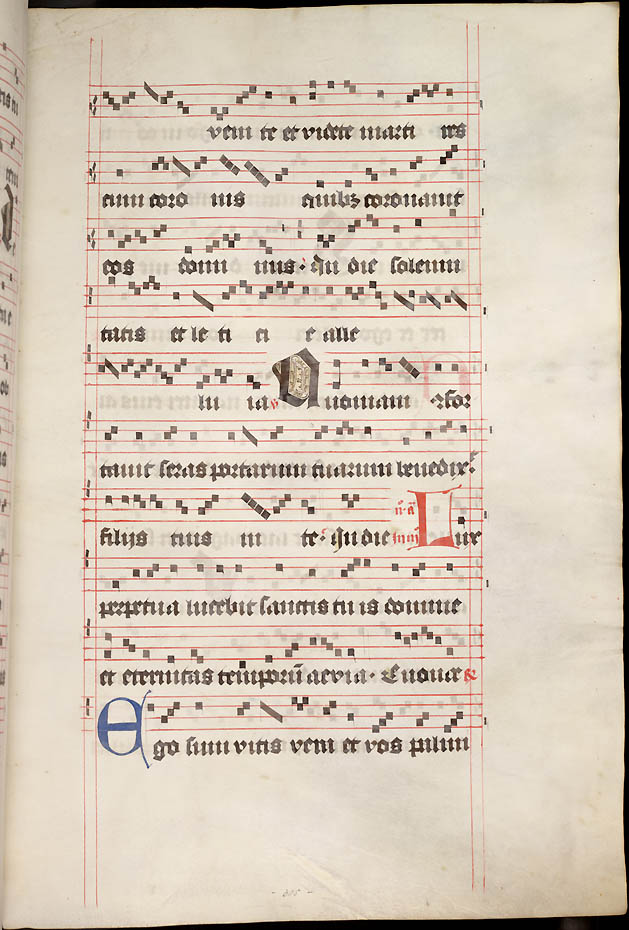 vem te et videte marti res
cum coro nis quibꝫ coronauit
eos domi nus · In die solemn
tatis et le ti ci e alle
lu ia Quoniam cōfor
tauit seras portarum tuarum benedixͭ
filijs tuis in te · In die Lux
perpetua lucebit sanctis tu is domine
et eternitas temporū aevia · Euouae
Ego sum vitis vera et vos palmi